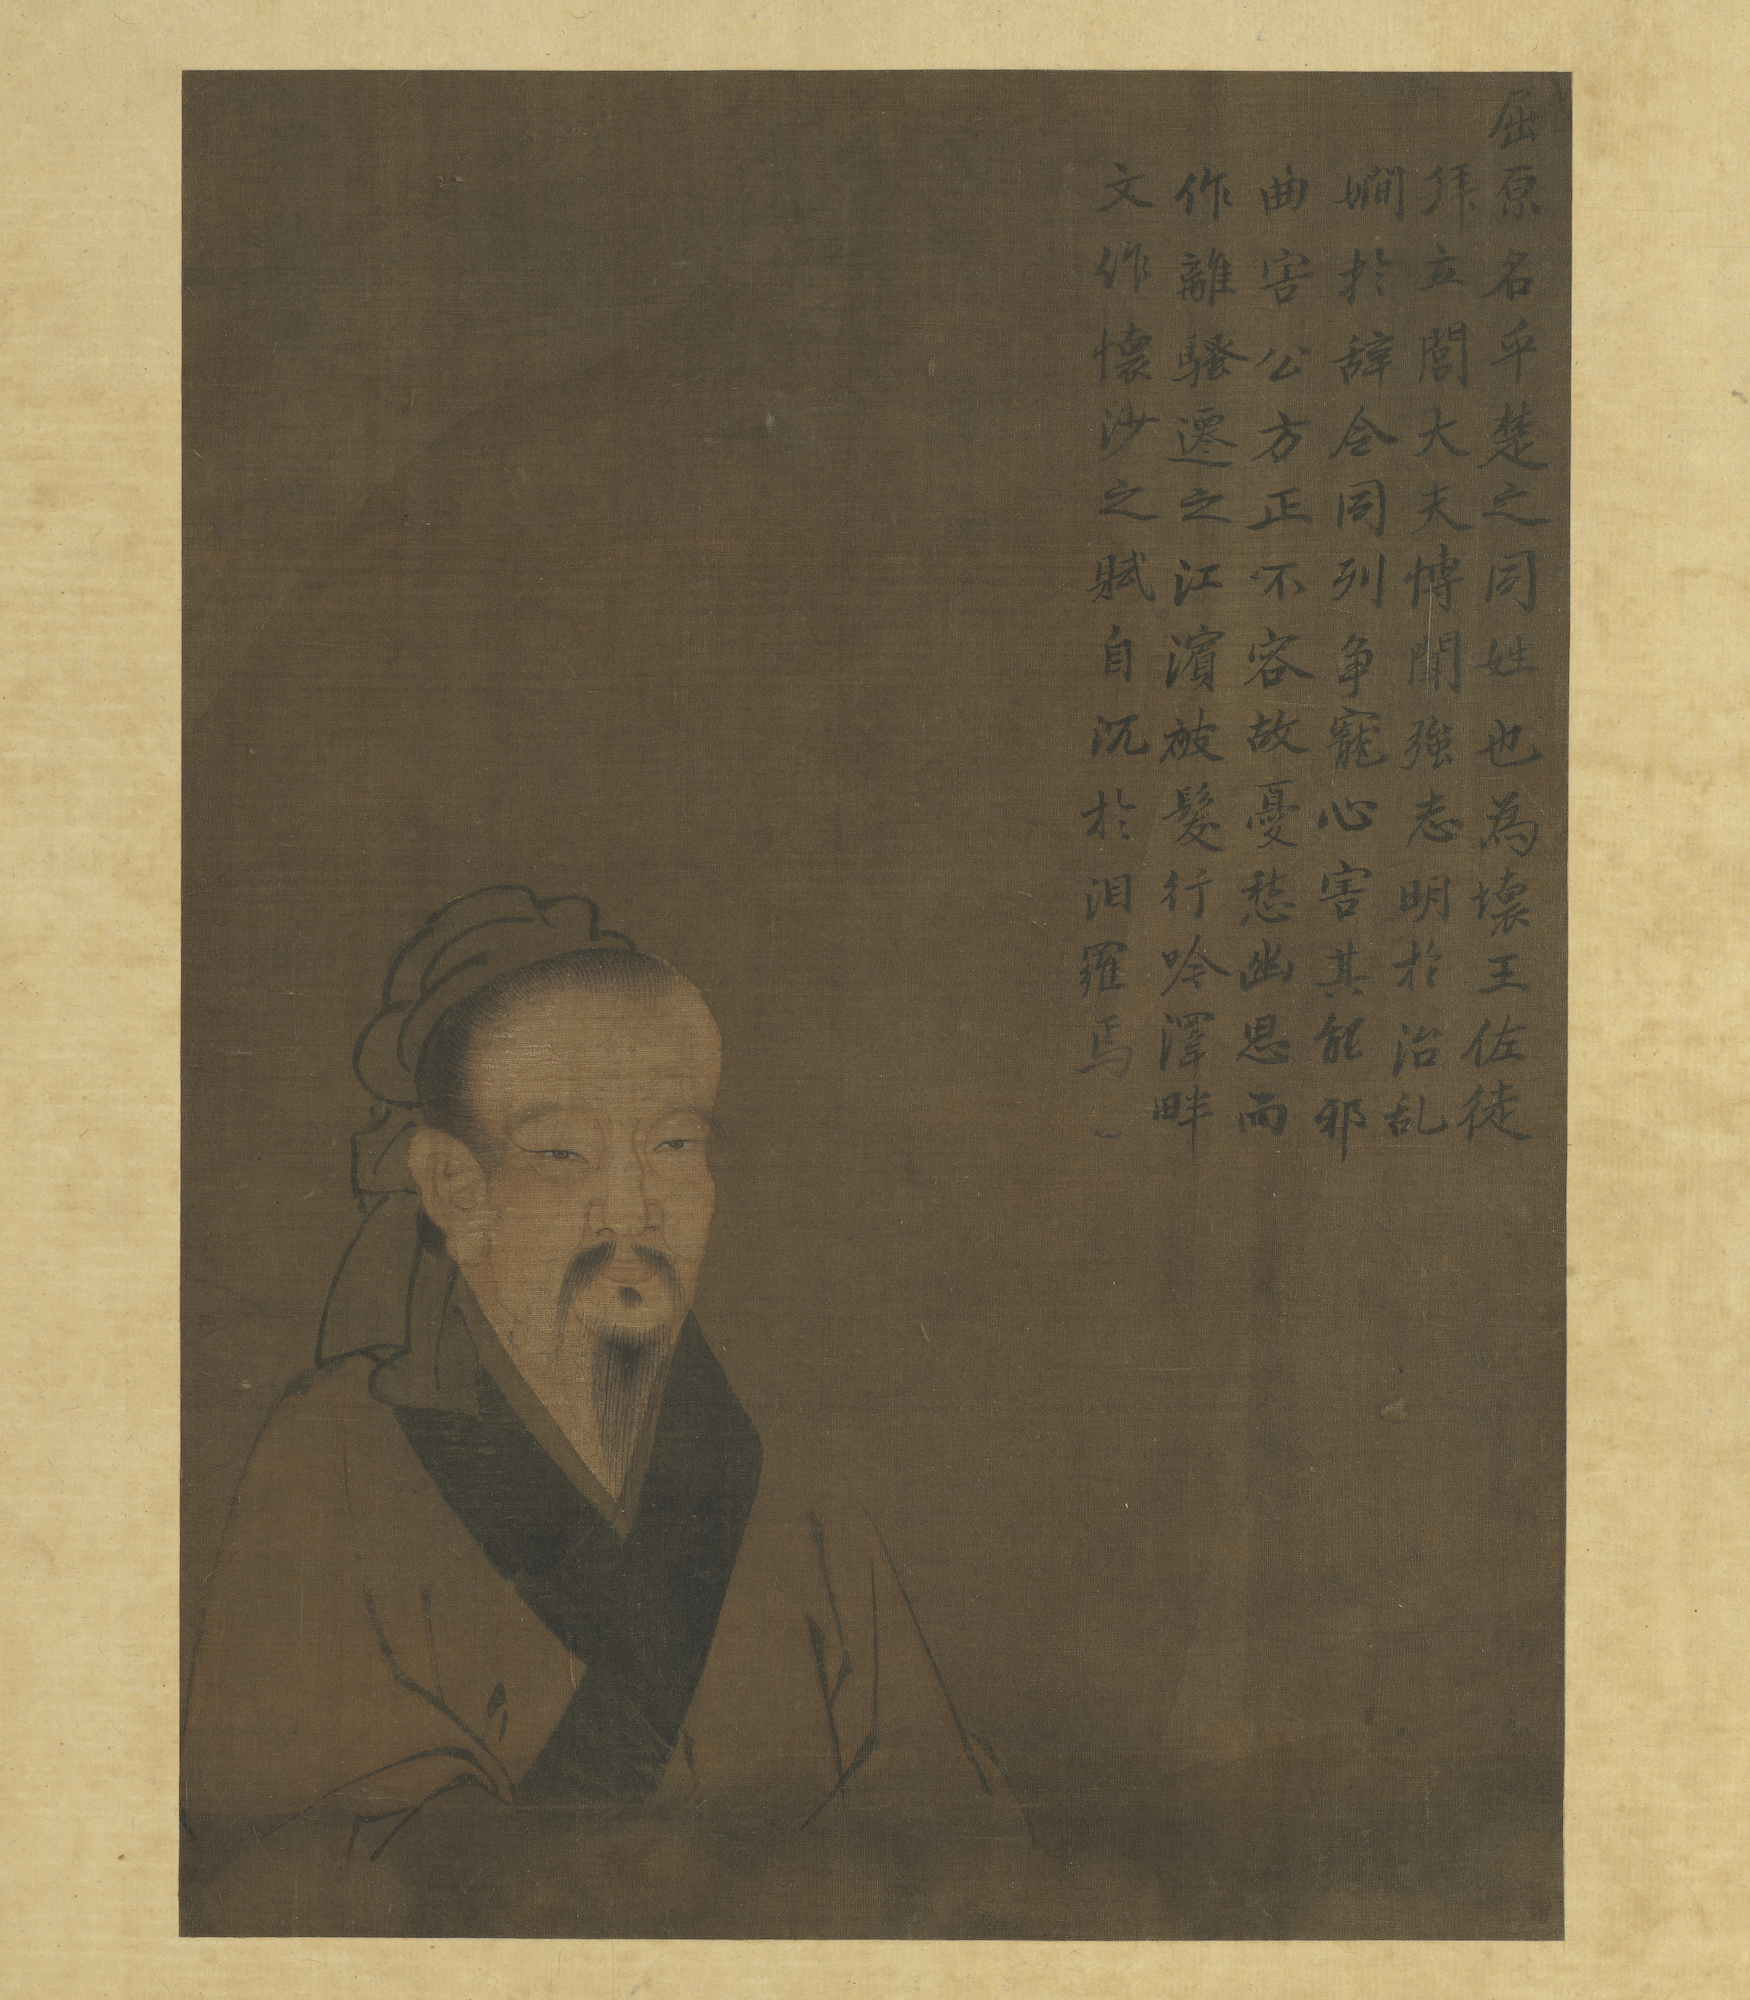 屈原名平楚之同姓也為壞王佐徒
拜立閭大夫博聞強志明於治乱
嫺於辭令同列争寵心害其能邪
曲害公方正不容故憂愁幽思而
作離騷遷之江濱被髮行吟澤畔
文作懷沙之賦自沉於汨羅焉